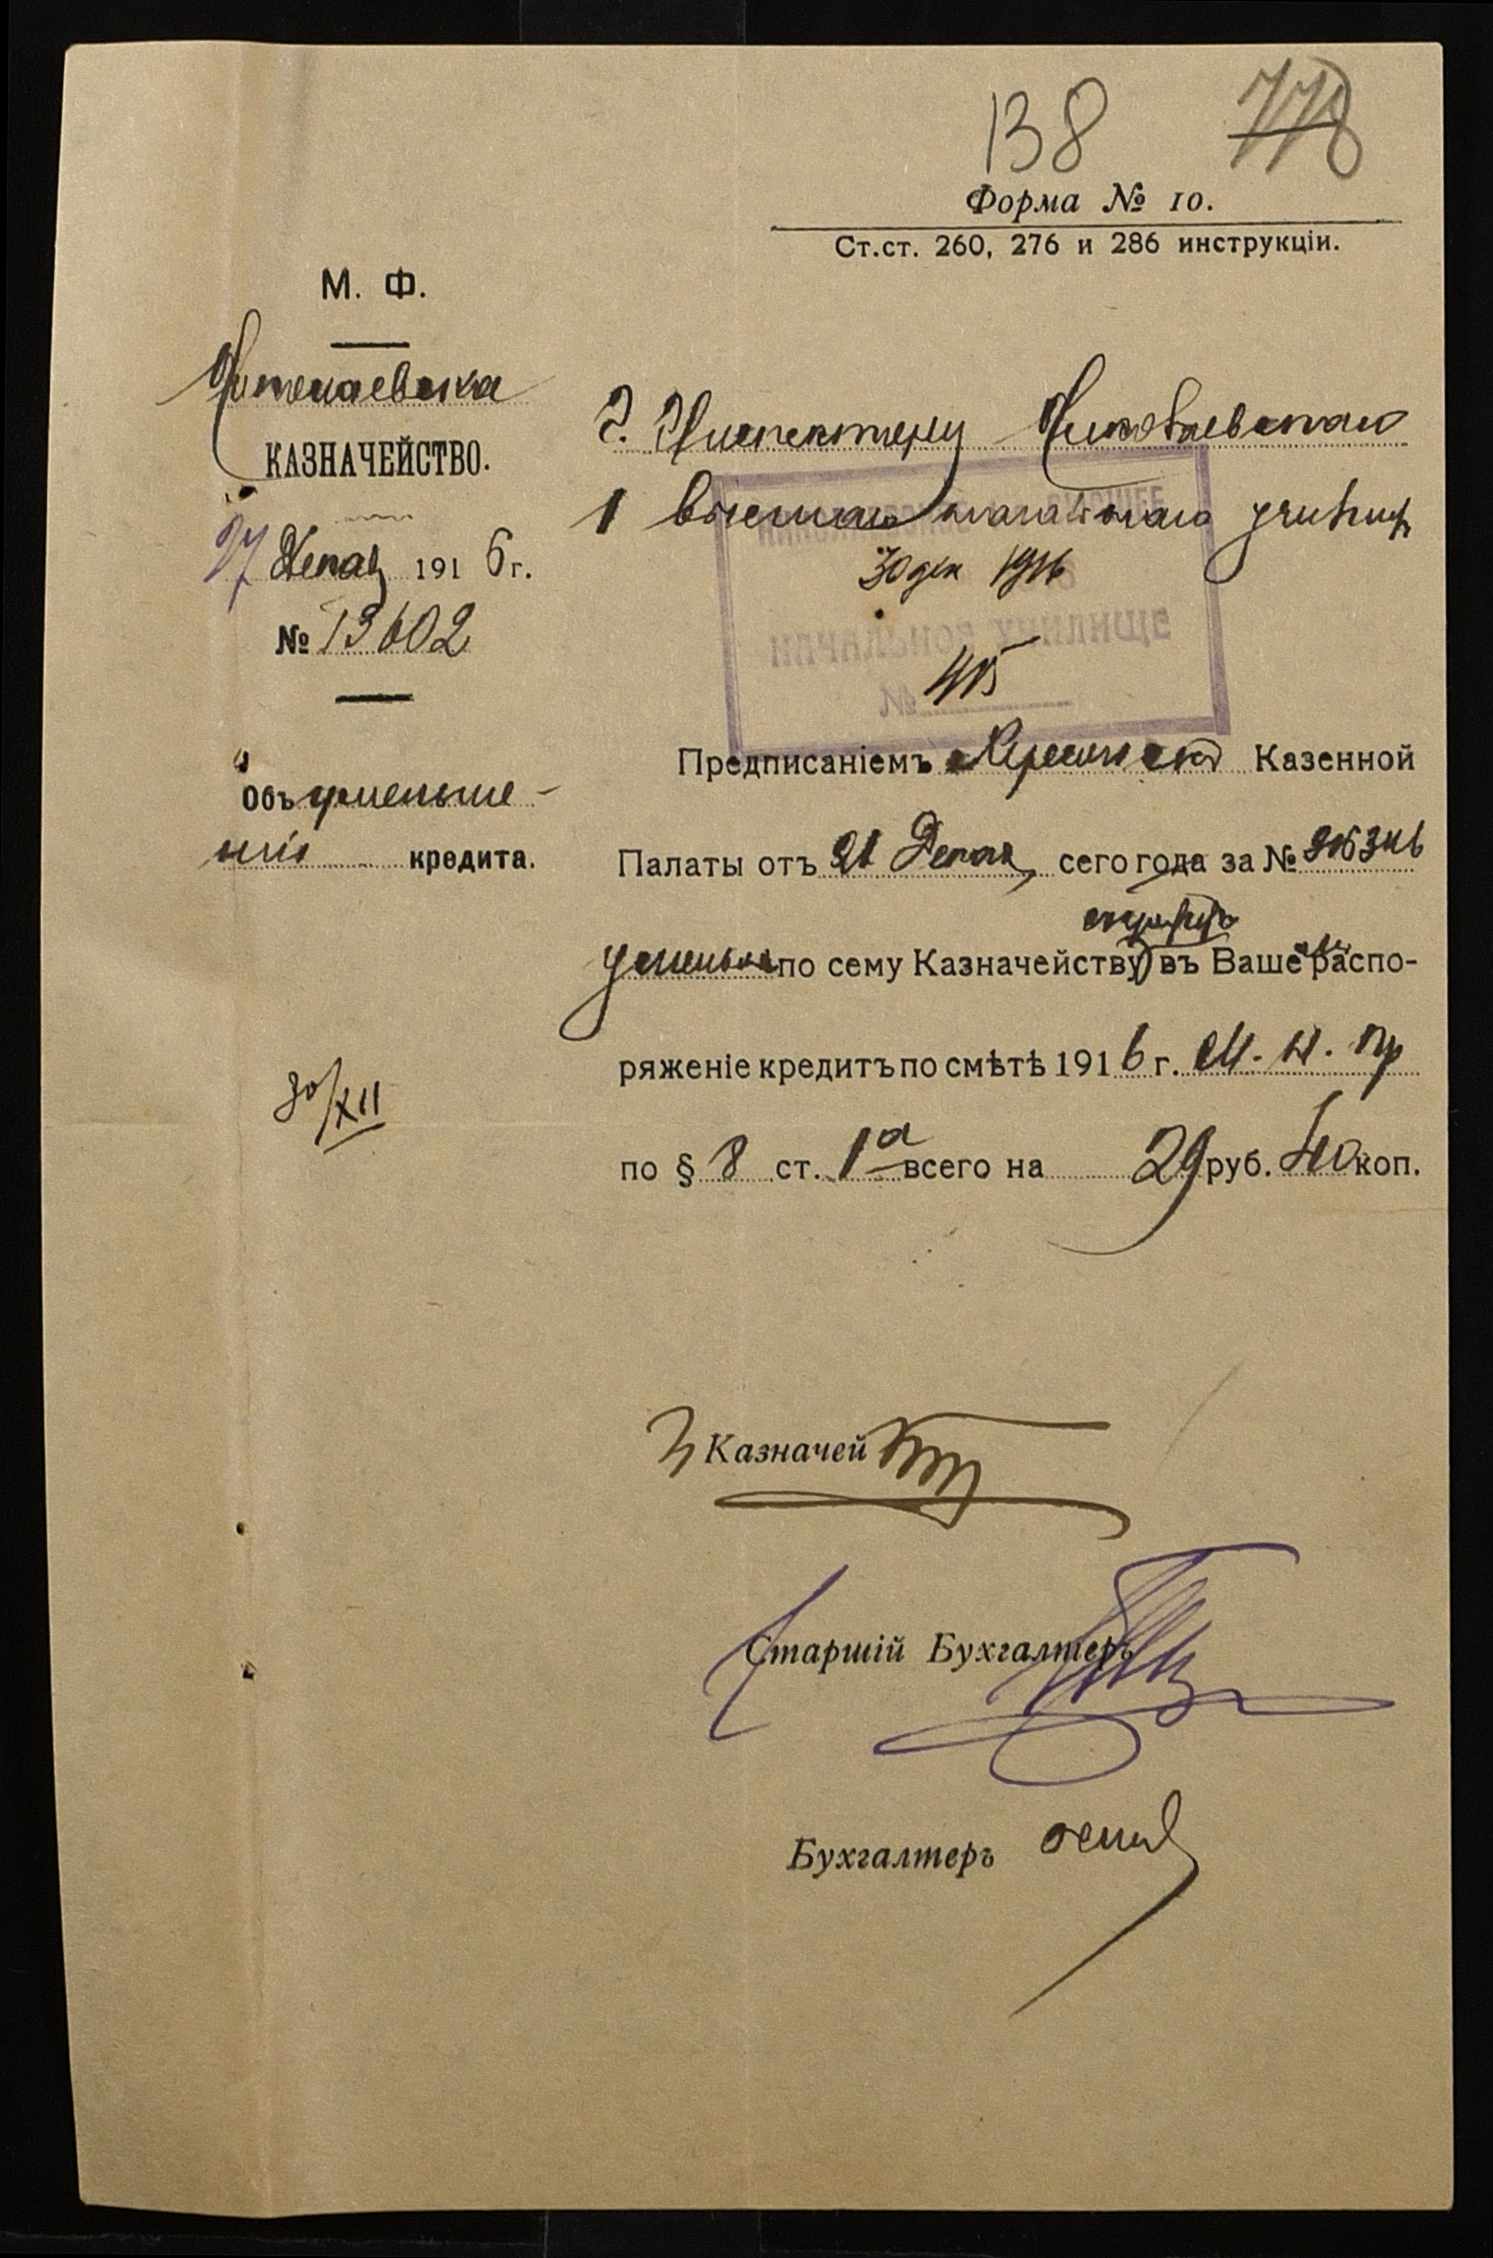 138 778
Форма № 10.
Ст.ст. 260, 276 и 286 инструкціи.
М. Ф.
Николаевска
КАЗНАЧЕЙСТВО.
27 Декаб 1916 г.
№ 13602
Объ уменьше-
нии кредита.
30/XII
Г. Инспектору Николаевскаго
1 высшаго начальнаго училища
30 дек 1916
НАЧАЛЬНОЕ УЧИЛИЩЕ
№ 415
Предписаніемъ Херсонской Казенной
Палаты отъ 21 Декаб сего года за №
уменьшенъ по сему Казначейству открытый въ Ваше распо-
ряженіе кредитъ по смѣтѣ 1916 г. М. Н. Пр
по § 8 ст. 1а всего на 29 руб. 40 коп.
Казначей
Старшій Бухгалтеръ
Бухгалтеръ